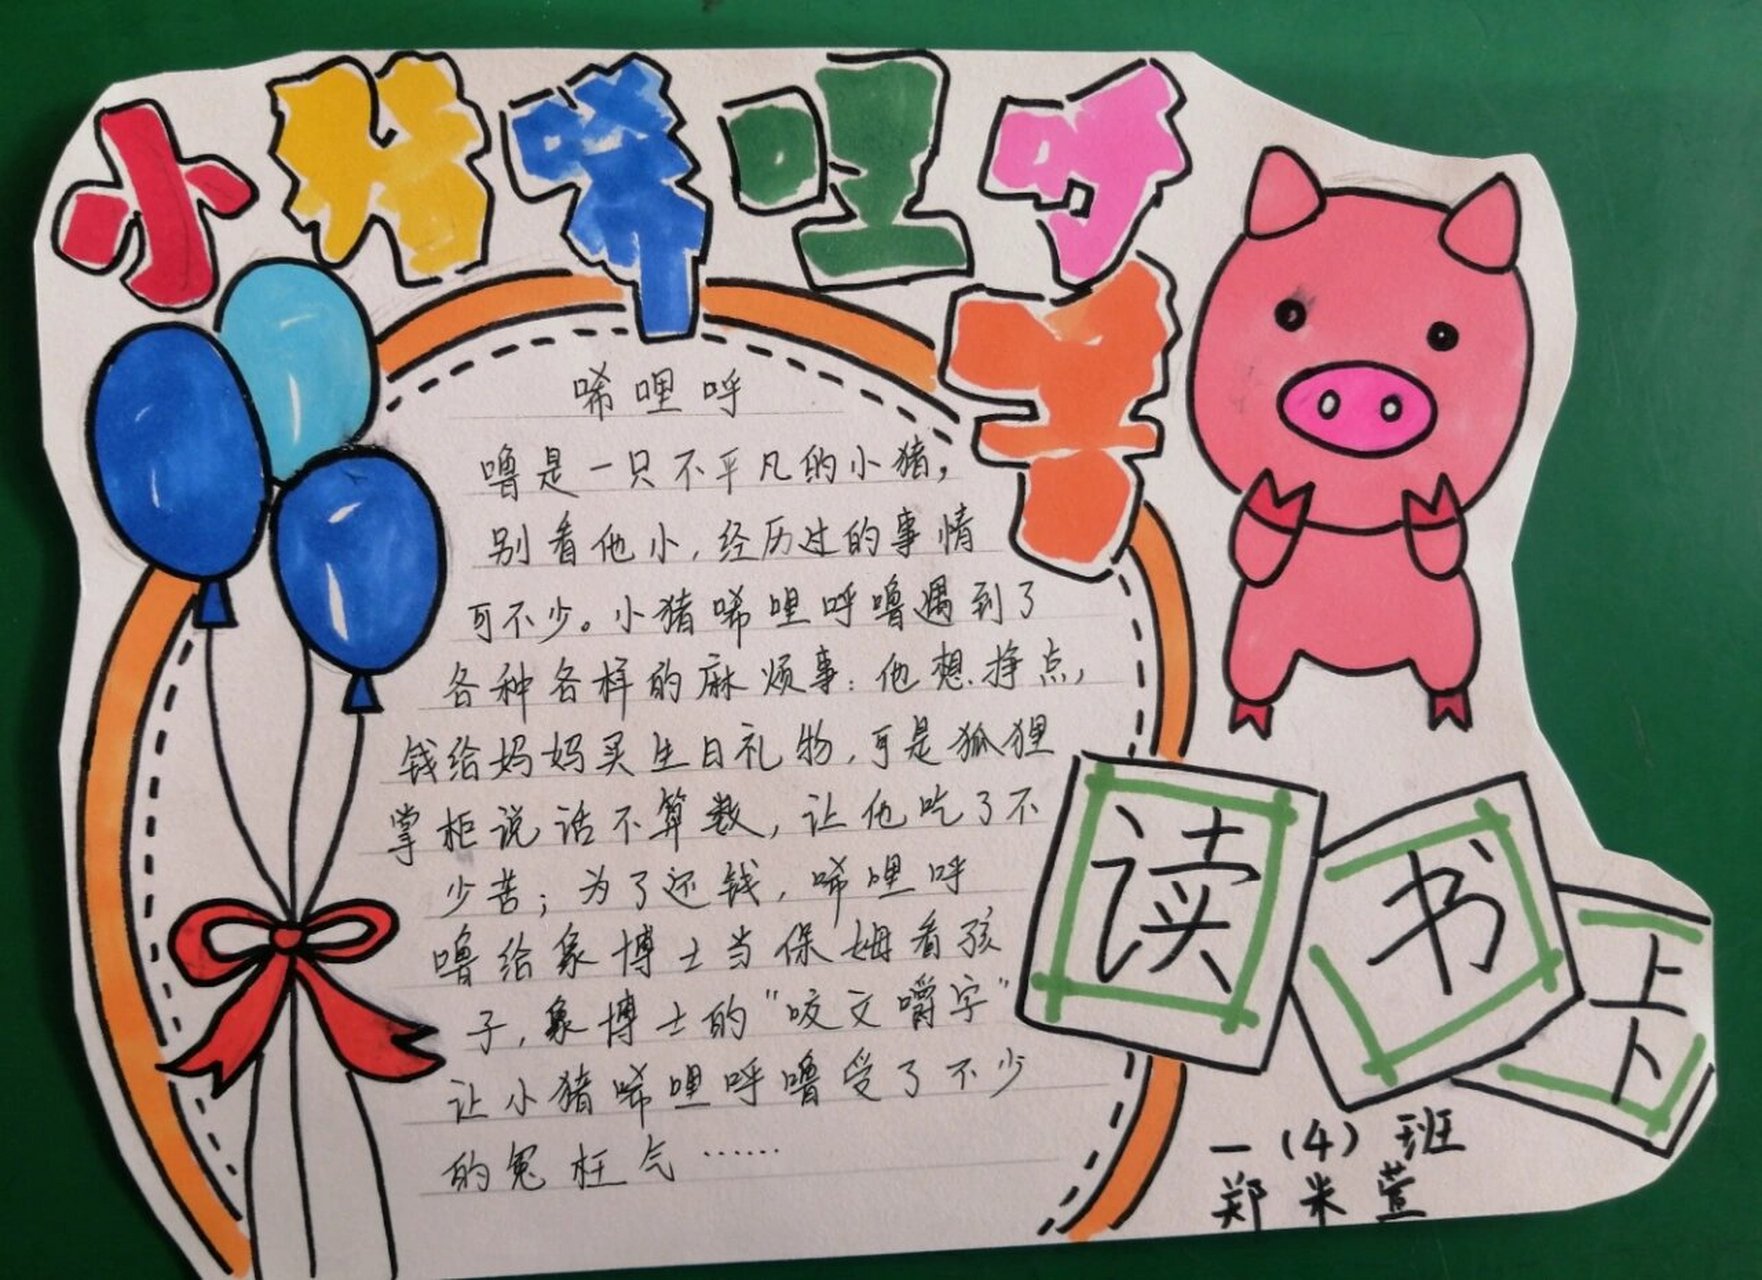 小猪唏哩呼
唏哩呼
噜是一只不平凡的小猪，
别看他小，经历过的事情
可不少。小猪唏哩呼噜遇到了
各种各样的麻烦事：他想挣点，
钱给妈妈买生日礼物，可是狐狸
掌柜说话不算数，让他吃了不
少苦；为了还钱，唏哩呼
噜给象博士当保姆看孩
子，象博士的“咬文嚼字”
让小猪唏哩呼噜受了不少
的冤枉气……
读书
一（4）班
郑米萱